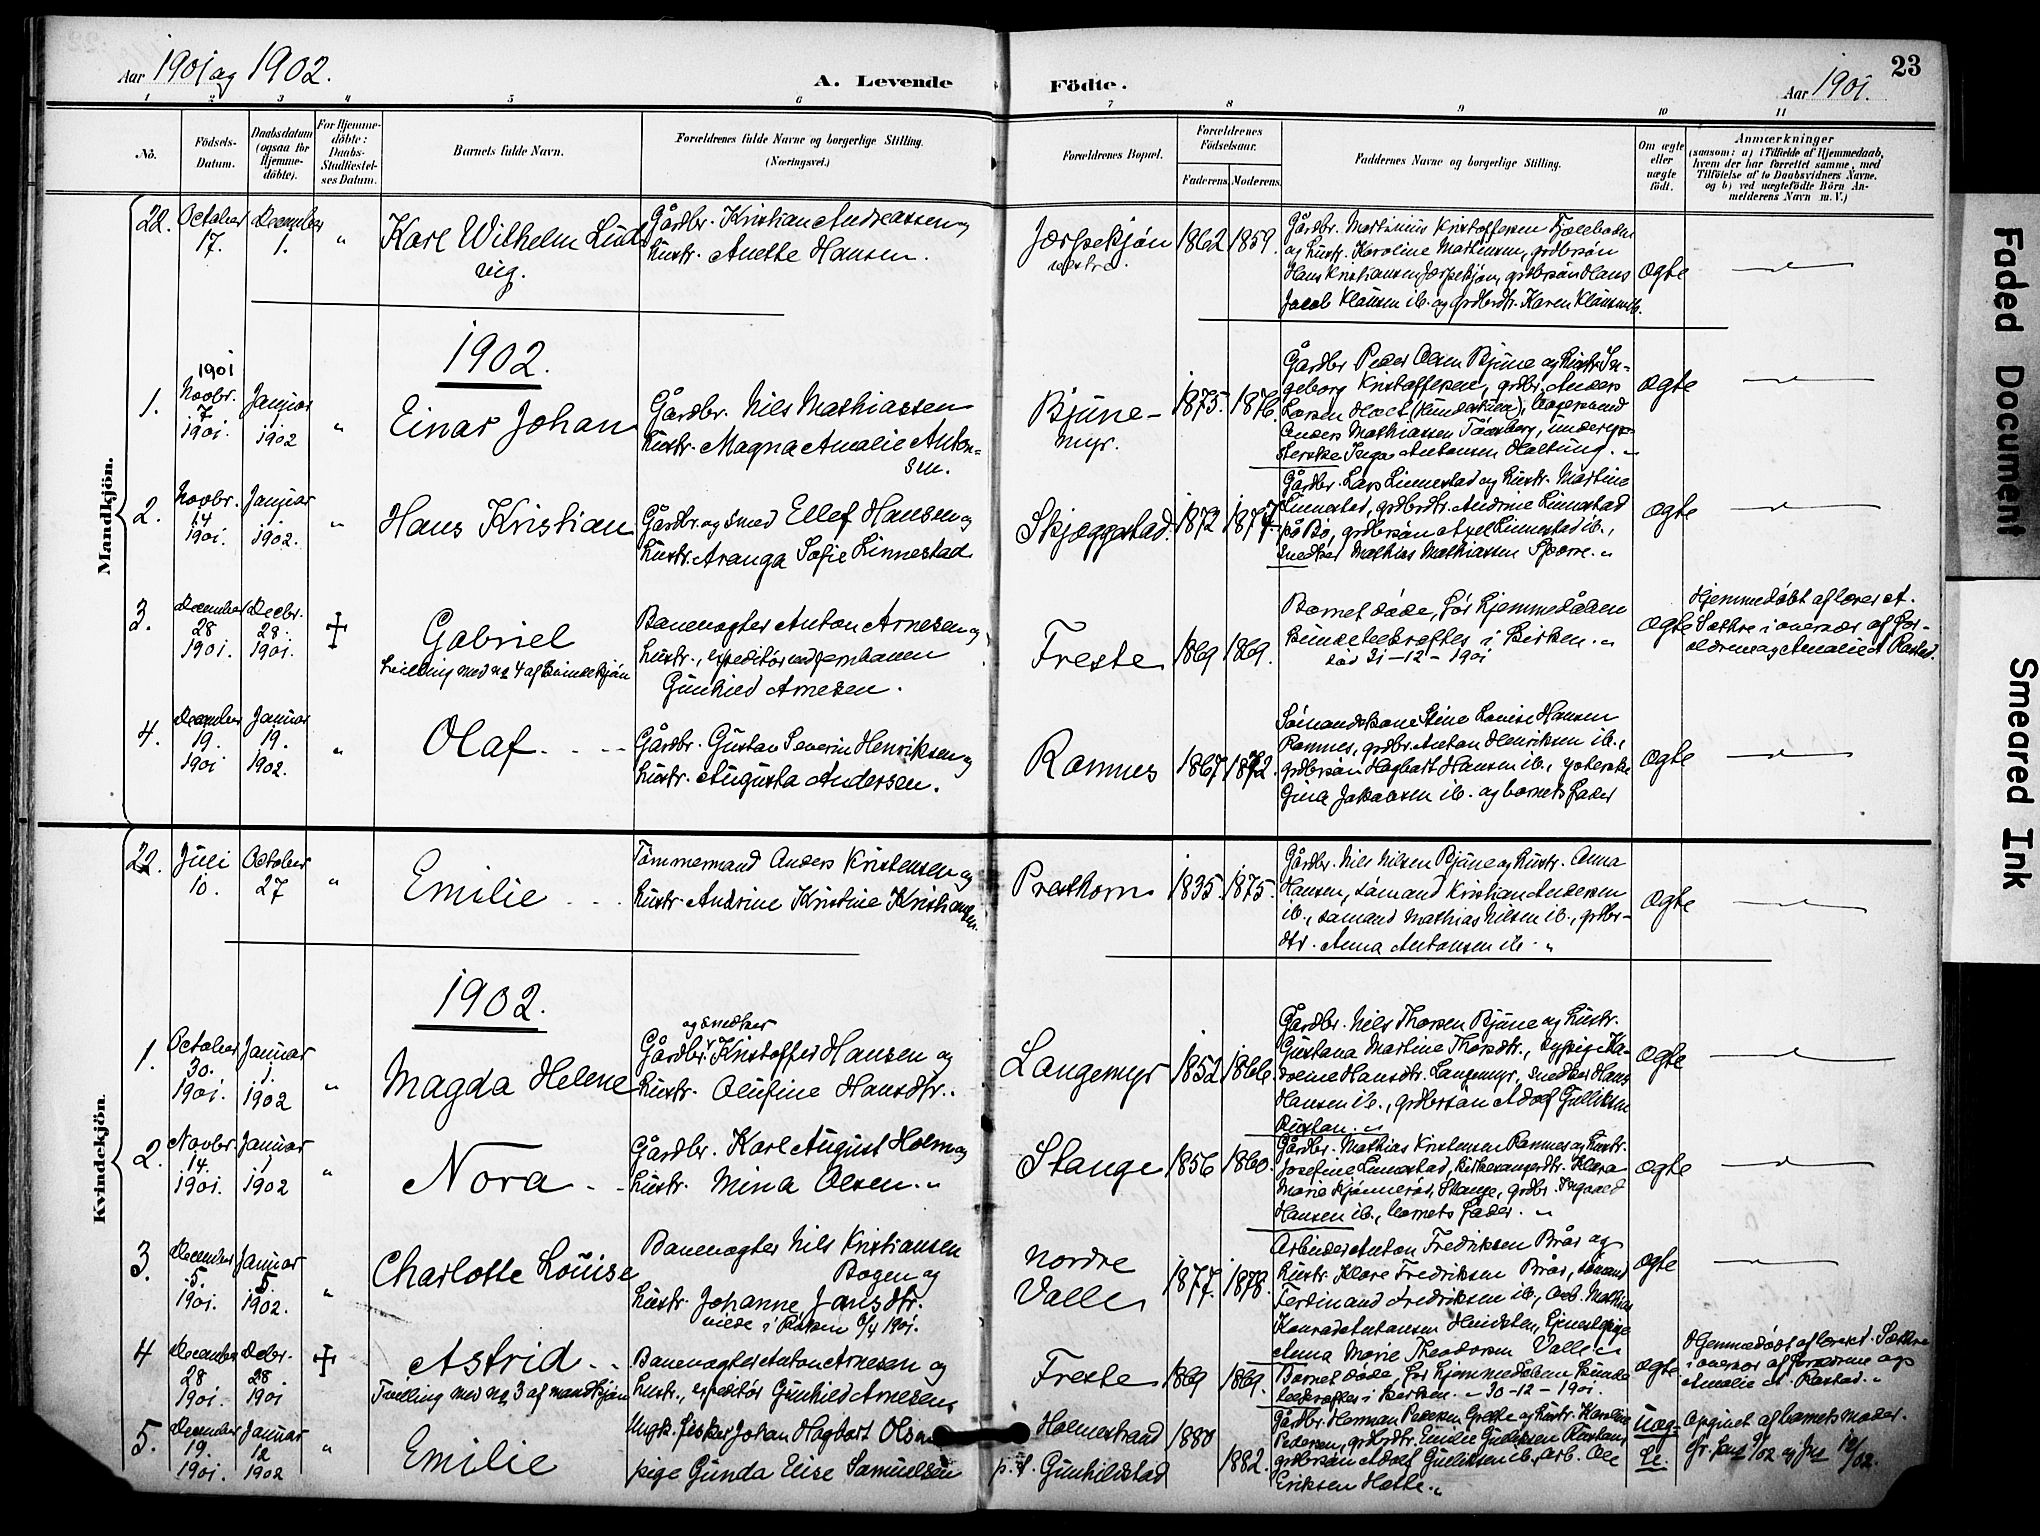 Aar 1901 og 1902.
A. Levende Födte.
Aar 1901.
23
1 2 3 4 5 6 7 8 9 10 11
No.
Födsels-Datum.
Daabsdatum (ogsaa for Hjemme-döbte).
For Hjemme-döbte: Daabs-Stadfæstel-ses Datum.
Barnets fulde Navn.
Forældrenes fulde Navne og borgerlige Stilling. (Næringsvei.)
Forældrenes Bopæl.
Forældrenes Födselsaar.
Faderens. Moderens.
Faddernes Navne og borgerlige Stilling.
Om ægte eller uægte födt.
Anmærkninger
(saasom: a) i Tilfælde af Hjemmedaab, hvem der har forrettet samme, med Tilföielse af to Daabsvidners Navne. og b) ved uægtefödte Börn An-melderens Navn m. V.)
Mandkjön.
22. October 17. December 1. " Karl Wilhelm Lud-
vig.
Gårdbr. Kristian Andreassen og
hustr. Anette Hansen.
Jærpekjøn
vestre.
1862 1859.
Gårdbr. Martinius Kristoffersen
og hustr. Karoline Martinsen, grdbrsøn
Hans Kristiansen Jærpekjøn, grdbrsøn Hans
Jacob Klausen ib. og grdbrdtr. Karen Klausen ib.
ægte
1902.
1. 1901 Novbr. 7 1901. Januar 1 1902 " Einar Johan
Gårdbr. Nils Mathiassen
hustr. Magna Amalie Anton-
sen.
Bjune-
myr.
1875. 1876.
Gårdbr Peder Olsen Bjune og hustr. In-
geborg Kristoffersen, grdbr. Anders
Larsen
Anders Mathiassen Tønsberg,
Inga Antonsen
ægte
2. Novbr. 14 1901. Januar 1. 1902. " Hans Kristian
Gårdbr. og smed Ellef Hansen og
hustr. Aranga Sofie Linnestad
Skjæggestad.
1872 1877.
Gårdbr. Lars Linnestad og hustr. Martine
Linnestad, grdbrdtr. Andrine Linnestad
på Bø, grdbrsøn Axel Linnestad ib.,
snedker Mathias Mathiassen Sporre. "
ægte
3. December 28 1901. Decbr. 28. 1901. Gabriel
tvilling med no 4 af kvindekjøn
Banevogter Anton Arnesen og
hustr., expeditør ved jernbanen
Gunhild Arnesen.
Freste
1869 1869.
Barnet døde, før hjemmedåben
kunde bekræftes i kirken. "
død 31-12-1901
ægte
Hjemmedøbt af lærer A.
Sæthre i overvær af for-
ældrene og Amalie A Rastad.
4. December 19. 1901 Januar 19. 1902. " Olaf.
Gårdbr. Gustav Severin Henriksen og
hustr. Augusta Andersen.
Ramnes
1867 1872.
Sømandskone Stine Louise Hansen
Ramnes, grdbr. Anton Henriksen ib.,
grdbrsøn Hagbart Hansen ib.,
Gina Jakobsen ib. og barnets fader
ægte
Kvindekjön.
22. Juli 10. October 27 " Emilie
Tømmermand Anders Kristensen og
hustr. Andrine Kristine Kristiansen.
Presthorn
1835 1875.
Gårdbr. Nils Nilsen Bjune og hustr. Anna
Hansen, sømand Kristian Andersen
ib., sømand Mathias Nilsen ib., grdbr-
dtr. Anna Antonsen ib. "
ægte
1902.
1. October 30. 1901. Januar 1. 1902 " Magda Helene
og snedker
Gårdbr. Kristoffer Hansen og
hustr. Olufine Hansdtr..
Langemyr
1852 1866.
Gårdbr. Nils Thorsen Bjune og hustr.
Gustava Martine Thorsdtr., sypige Ka-
roline Hansdtr. Langemyr, snedker Hans
Hansen ib., grdbrsøn Adolf Gulliksen
ægte
2. Novbr. 14. 1901. Januar 1 1902 " Nora
Gårdbr. Karl August Holm og
hustr. Mina Olsen. "
Stange
1856 1860.
Gårdbr. Mathias Kristensen Ramnes og hustr.
Josefine Linnestad, kirkesangerdtr. Klara
Marie Kjønnerød, Stange, grdbr. Ingvald
Hansen ib., barnets fader. "
ægte
3. December 5. 1901. Januar 5. 1902. " Charlotte Louise
Banevogter Nils Kristiansen
Bogen og
hustr. Johanne Jansdtr.
viede i Røken 6/4 1901.
Nordre
Valle
1877. 1878.
Arbeider Anton Fredriksen Brår og
hustr. Klara Fredriksen Brår, sømand
Ferdinand Fredriksen ib., arb. Mathias
Konrad Antonsen Hvidsten, tjenestpige
Anna Marie Theodorsen Valle "
ægte
4 December 28 1901. Decbr. 28. 1901 Astrid
Tvelling med no 3 af mandkjøn
Banevogter Anton Arnesen og
hustr., expeditør Gunhild Arnesen.
Freste
1869 1869.
Barnet døde, før hjemmedåben kunde
bekræftes i kirken. " 30-12-1901.
ægte
Hjemmedøbt af lærer A. Sæthre
i overvær af forældrene og
Amalie A. Rastad. "
5. December 19. 1901. Januar 12 1902 " Emilie
Ungk. fisker Johan Hagbart Olsen
pige Gunda Elise Samuelsen
Holmestrand
p. t. Gunhildstad
1880
1882.
Gårdbr. Herman Pedersen Grette og hustr. Karoline
Pedersen, grdbrdtr. Emilie Gulliksen
grdbrsøn Adolf Gulliksen ib., arb. Ole
Eriksen Hætte. "
Uæg-
te.
Opgivet af barnets moder.
Faded Document
Smeared Ink